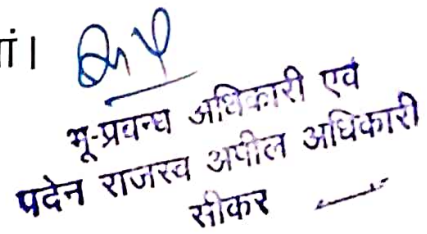 ां।
भू-प्रवन्ध अधिकारी एवं
पदेन राजस्व अपील अधिकारी
सीकर